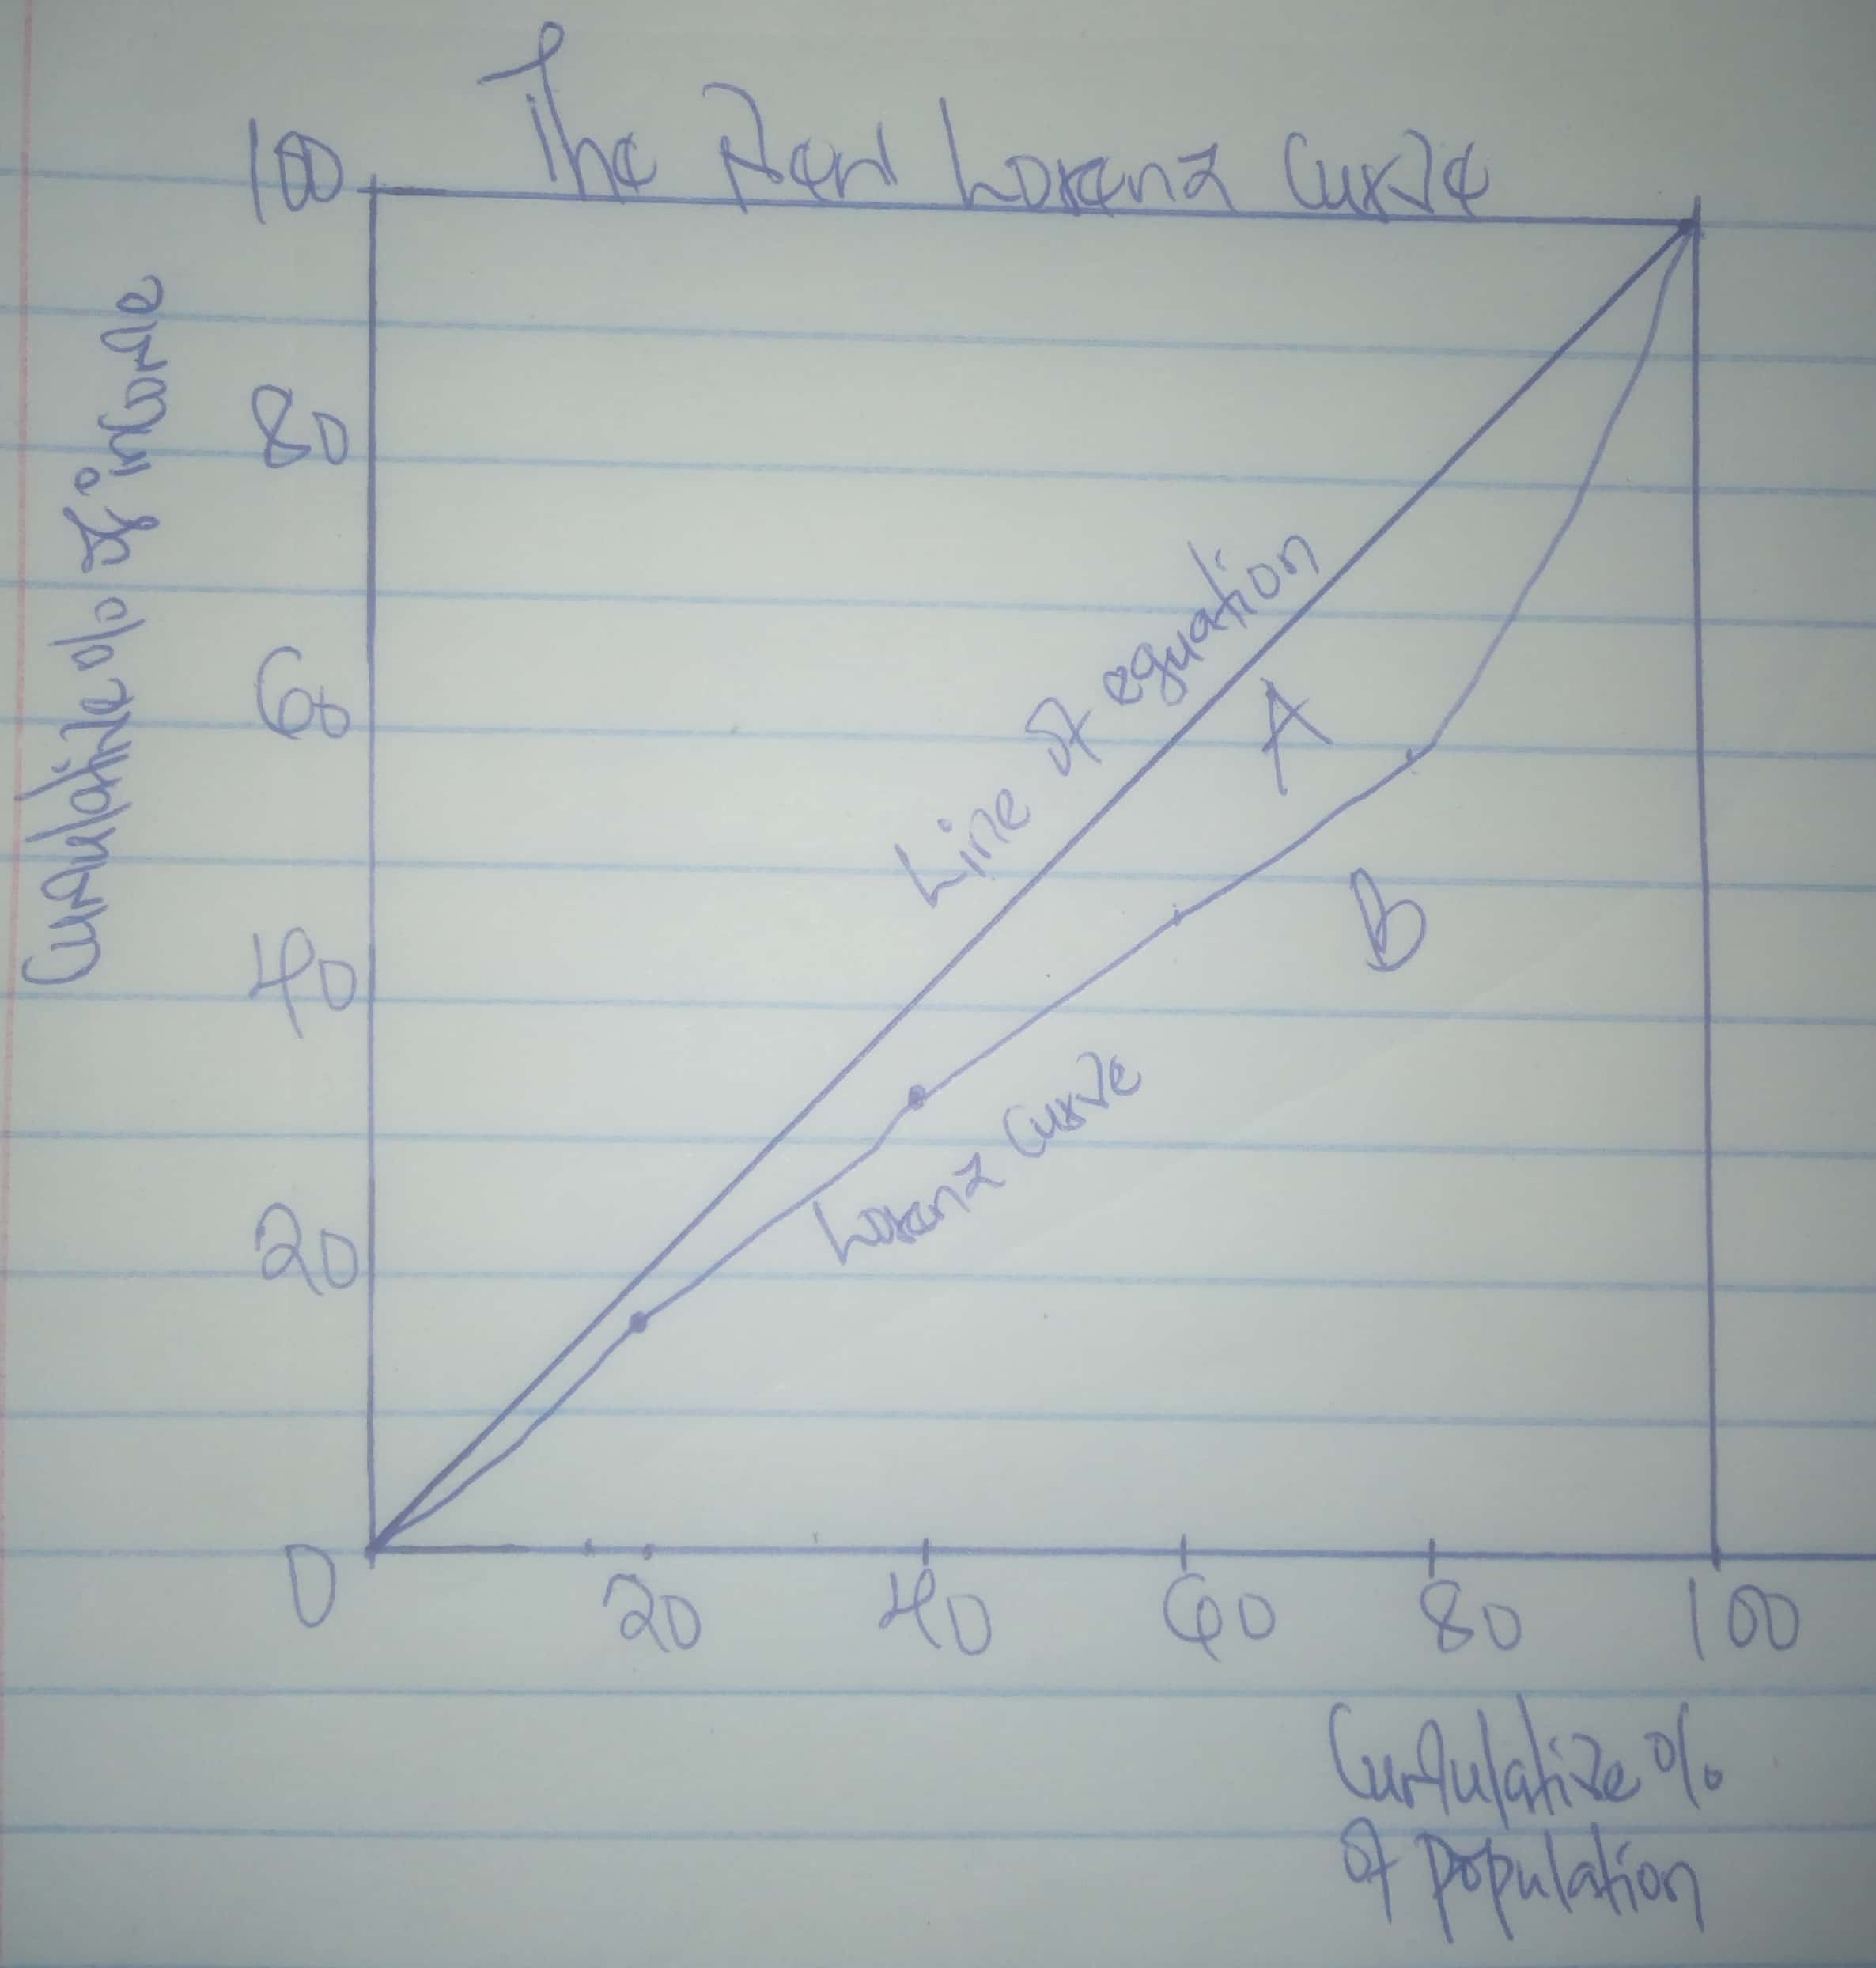 The New Lorenz Curve
100
80
60
40
20
0
Cumulative % of income
Line of equation
A
B
Lorenz Curve
20
40
60
80
100
Cumulative %
of population